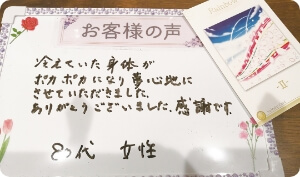 お客様の声
冷えていた身体が
ポカポカになり夢心地に
させていただきました。
ありがとうございました。感謝です。
80代 女性
-II-